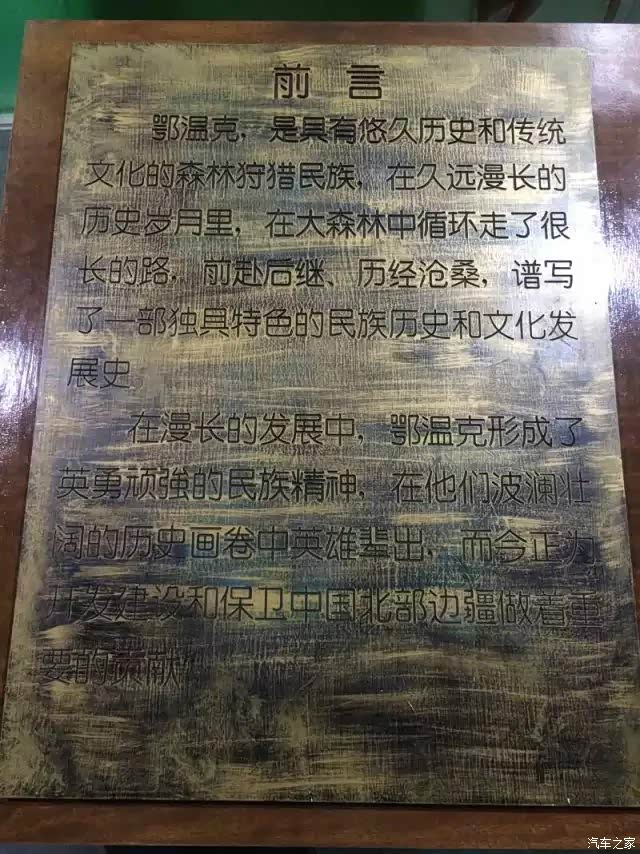 前言
鄂温克，是具有悠久历史和传统
文化的森林狩猎民族，在久远漫长的
历史岁月里，在大森林中循环走了很
长的路，前赴后继、历经沧桑，谱写
了一部独具特色的民族历史和文化发
展史。
在漫长的发展中，鄂温克形成了
英勇顽强的民族精神，在他们波澜壮
阔的历史画卷中英雄辈出，而今正为
开发建设和保卫中国北部边疆做着重
要的贡献
汽车之家